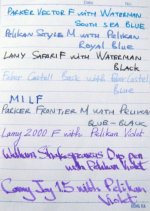 Date No.
Parker Vector F with Waterman
South Sea Blue
Pelikan Style M with Pelikan
Royal Blue
Lamy Safari F with Waterman
Black
Faber Castell Basic with Faber Castell
Blue
MILF
Parker Frontier M with Pelikan
Blue-Black
Lamy 2000 F with Pelikan Violet
William Shakespeare's Dip pen
with Pelikan Violet
Conny Joy 1.5 with Pelikan
Violet